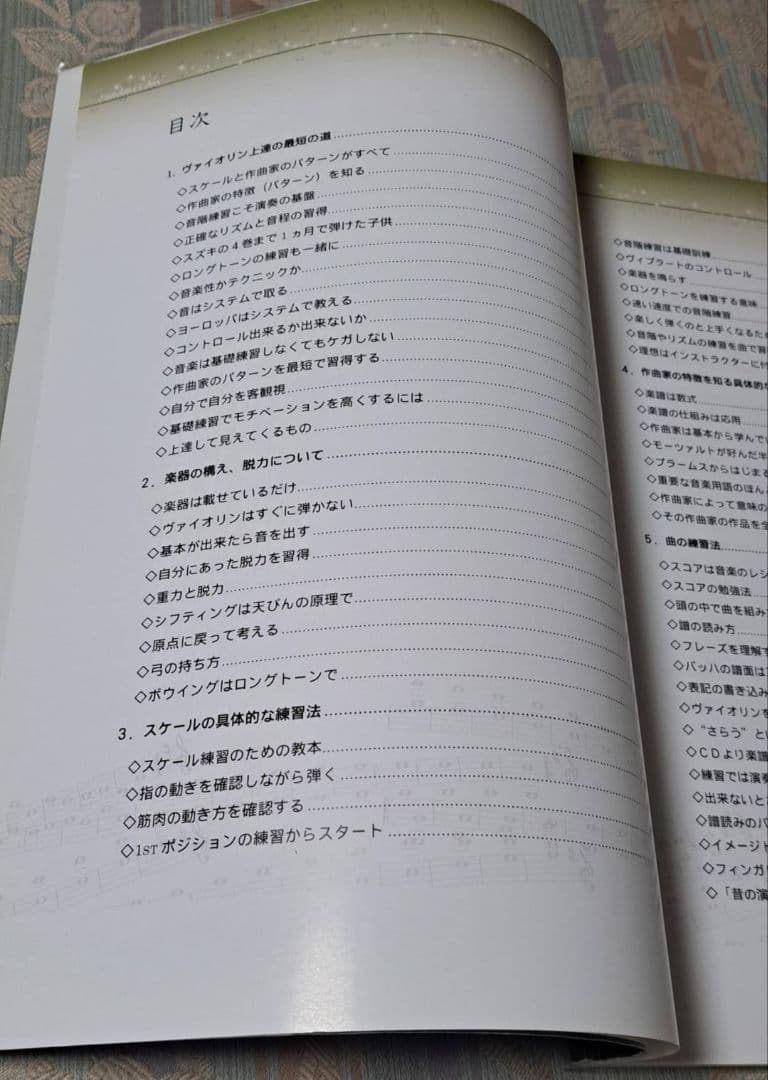 目次
1. ヴァイオリン上達の最短の道
◇スケールと作曲家のパターンがすべて
◇作曲家の特徴（パターン）を知る
◇音階練習こそ演奏の基盤
◇正確なリズムと音程の習得
◇スズキの4巻まで1ヵ月で弾けた子供
◇ロングトーンの練習も一緒に
◇音楽性かテクニックか
◇音はシステムで取る
◇ヨーロッパはシステムで教える
◇コントロール出来るか出来ないか
◇音楽は基礎練習しなくてもケガしない
◇作曲家のパターンを最短で習得する
◇自分で自分を客観視
◇基礎練習でモチベーションを高くするには
◇上達して見えてくるもの
2. 楽器の構え、脱力について
◇楽器は載せているだけ
◇ヴァイオリンはすぐに弾かない
◇基本が出来たら音を出す
◇自分にあった脱力を習得
◇重力と脱力
◇シフティングは天びんの原理で
◇原点に戻って考える
◇弓の持ち方
◇ボウイングはロングトーンで
3. スケールの具体的な練習法
◇スケール練習のための教本
◇指の動きを確認しながら弾く
◇筋肉の動き方を確認する
◇1STポジションの練習からスタート
◇音階練習は基礎訓練
◇ヴィブラートのコントロール
◇楽器を鳴らす
◇ロングトーンを練習する意味
◇速い速度での音階練習
◇楽しく弾くのと上手くなるため
◇音階やリズムの練習を曲で習
◇理想はインストラクターに付
4. 作曲家の特徴を知る具体的な
◇楽譜は数式
◇楽譜の仕組みは応用
◇作曲家は基本から学んで
◇モーツァルトが好んだ半
◇ブラームスからはじまる
◇重要な音楽用語のほん
◇作曲家によって意味の
◇その作曲家の作品を全
5. 曲の練習法
◇スコアは音楽のレシ
◇スコアの勉強法
◇頭の中で曲を組み
◇譜の読み方
◇フレーズを理解す
◇バッハの譜面は
◇表記の書き込み
◇ヴァイオリンを
◇“さらう”と
◇CDより楽譜
◇練習では演奏
◇出来ないと
◇譜読みのパ
◇イメージト
◇フィンガ
◇「昔の演